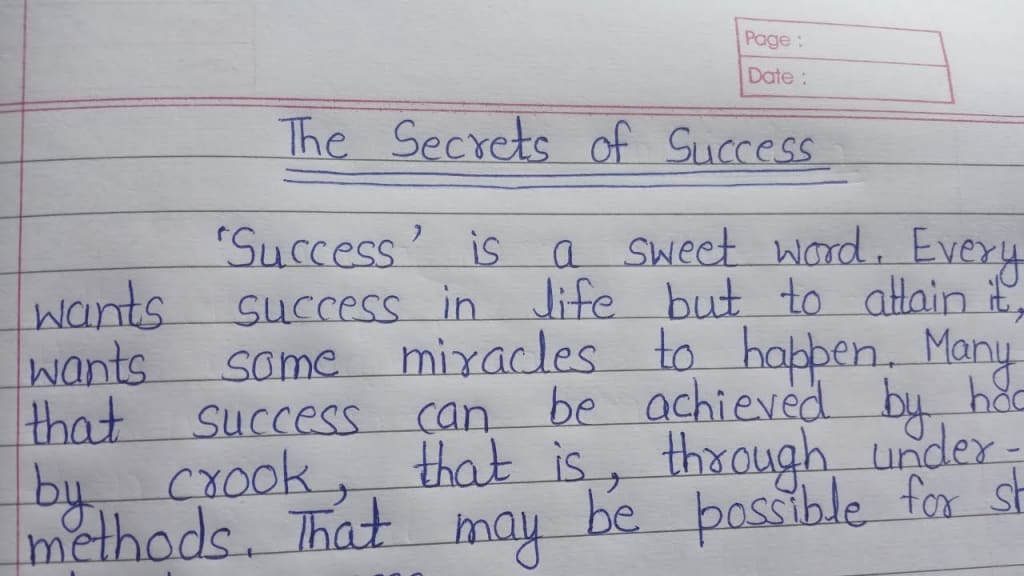 Page :
Date :
The Secrets of Success
'Success' is a sweet word. Every
wants success in life but to attain it,
wants some miracles to happen. Many
that success can be achieved by hoo
by crook, that is, through under-
methods. That may be possible for sh